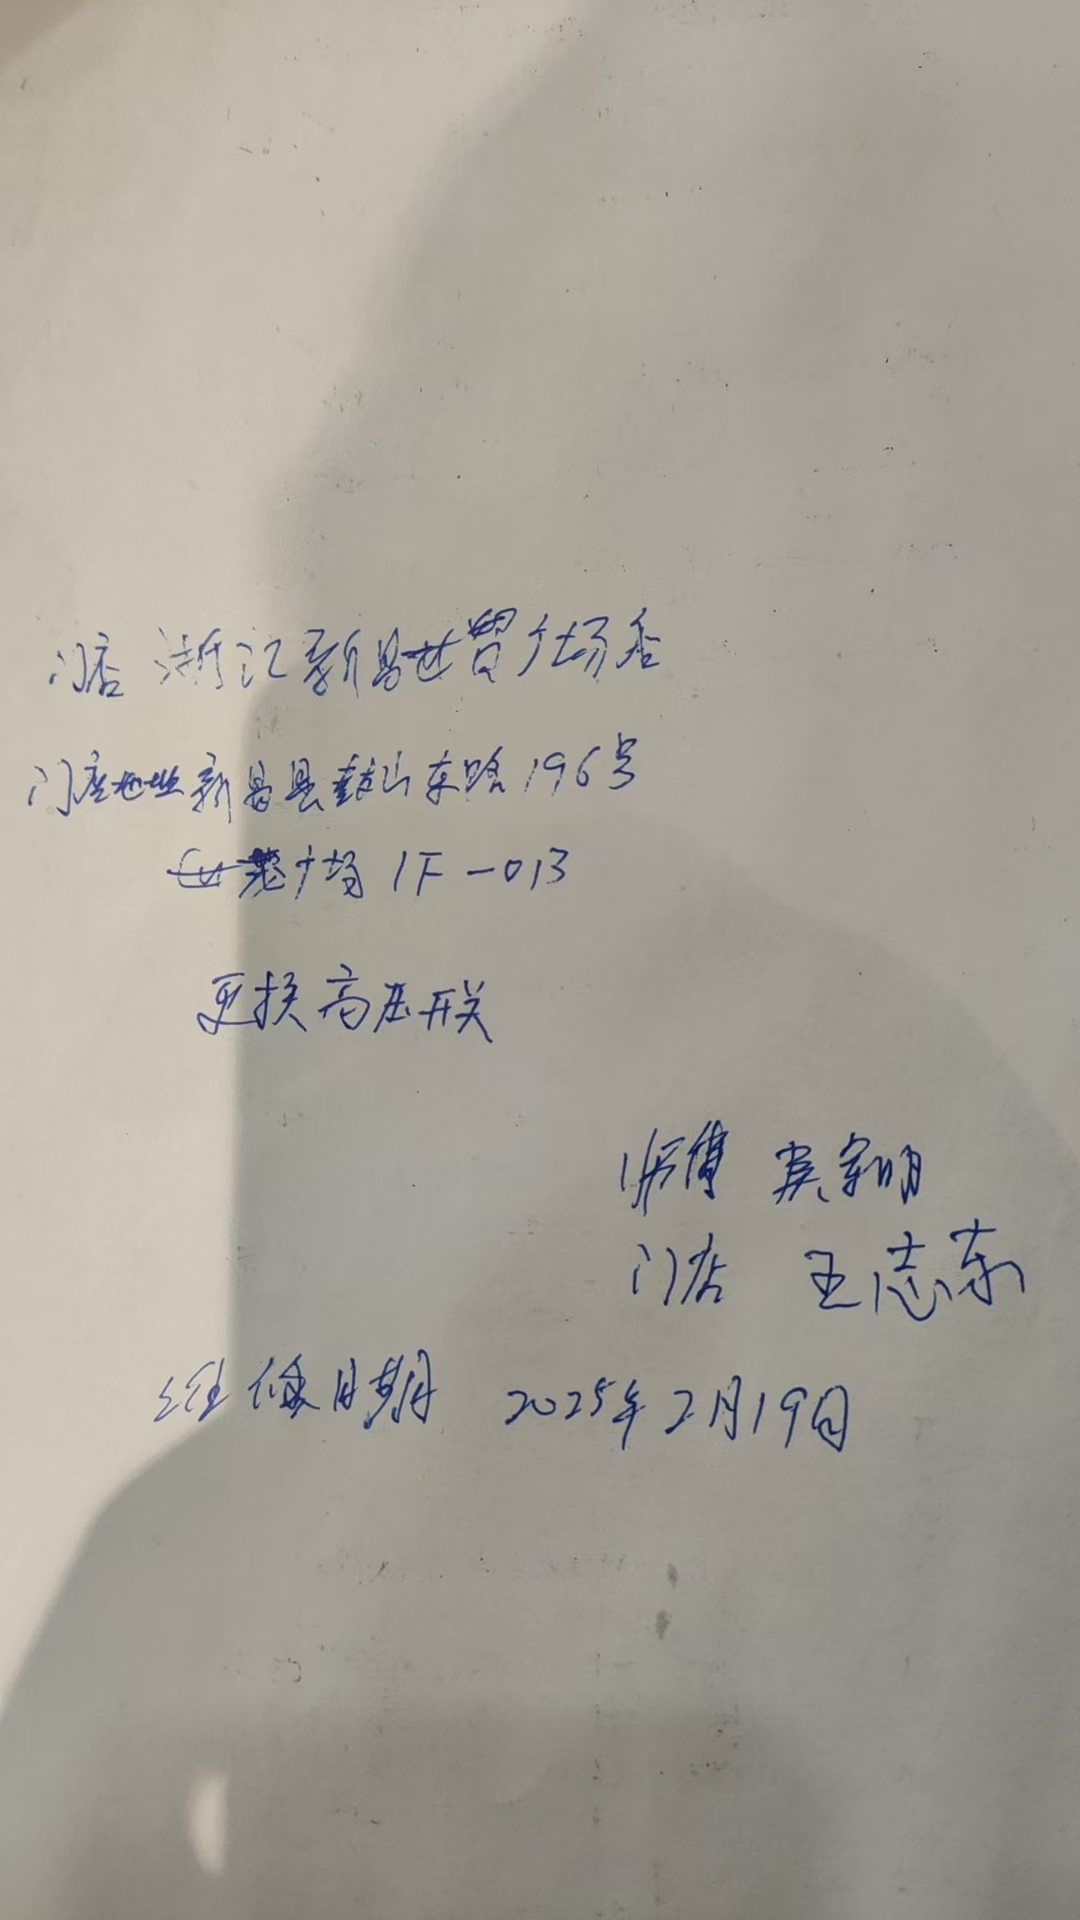 门店 浙江新昌世贸广场店
门店地址 新昌县鼓山东路196号
世贸广场 1F-013
更换高压开关
师傅 吴宗明
门店 王志东
维修日期 2025年2月19日